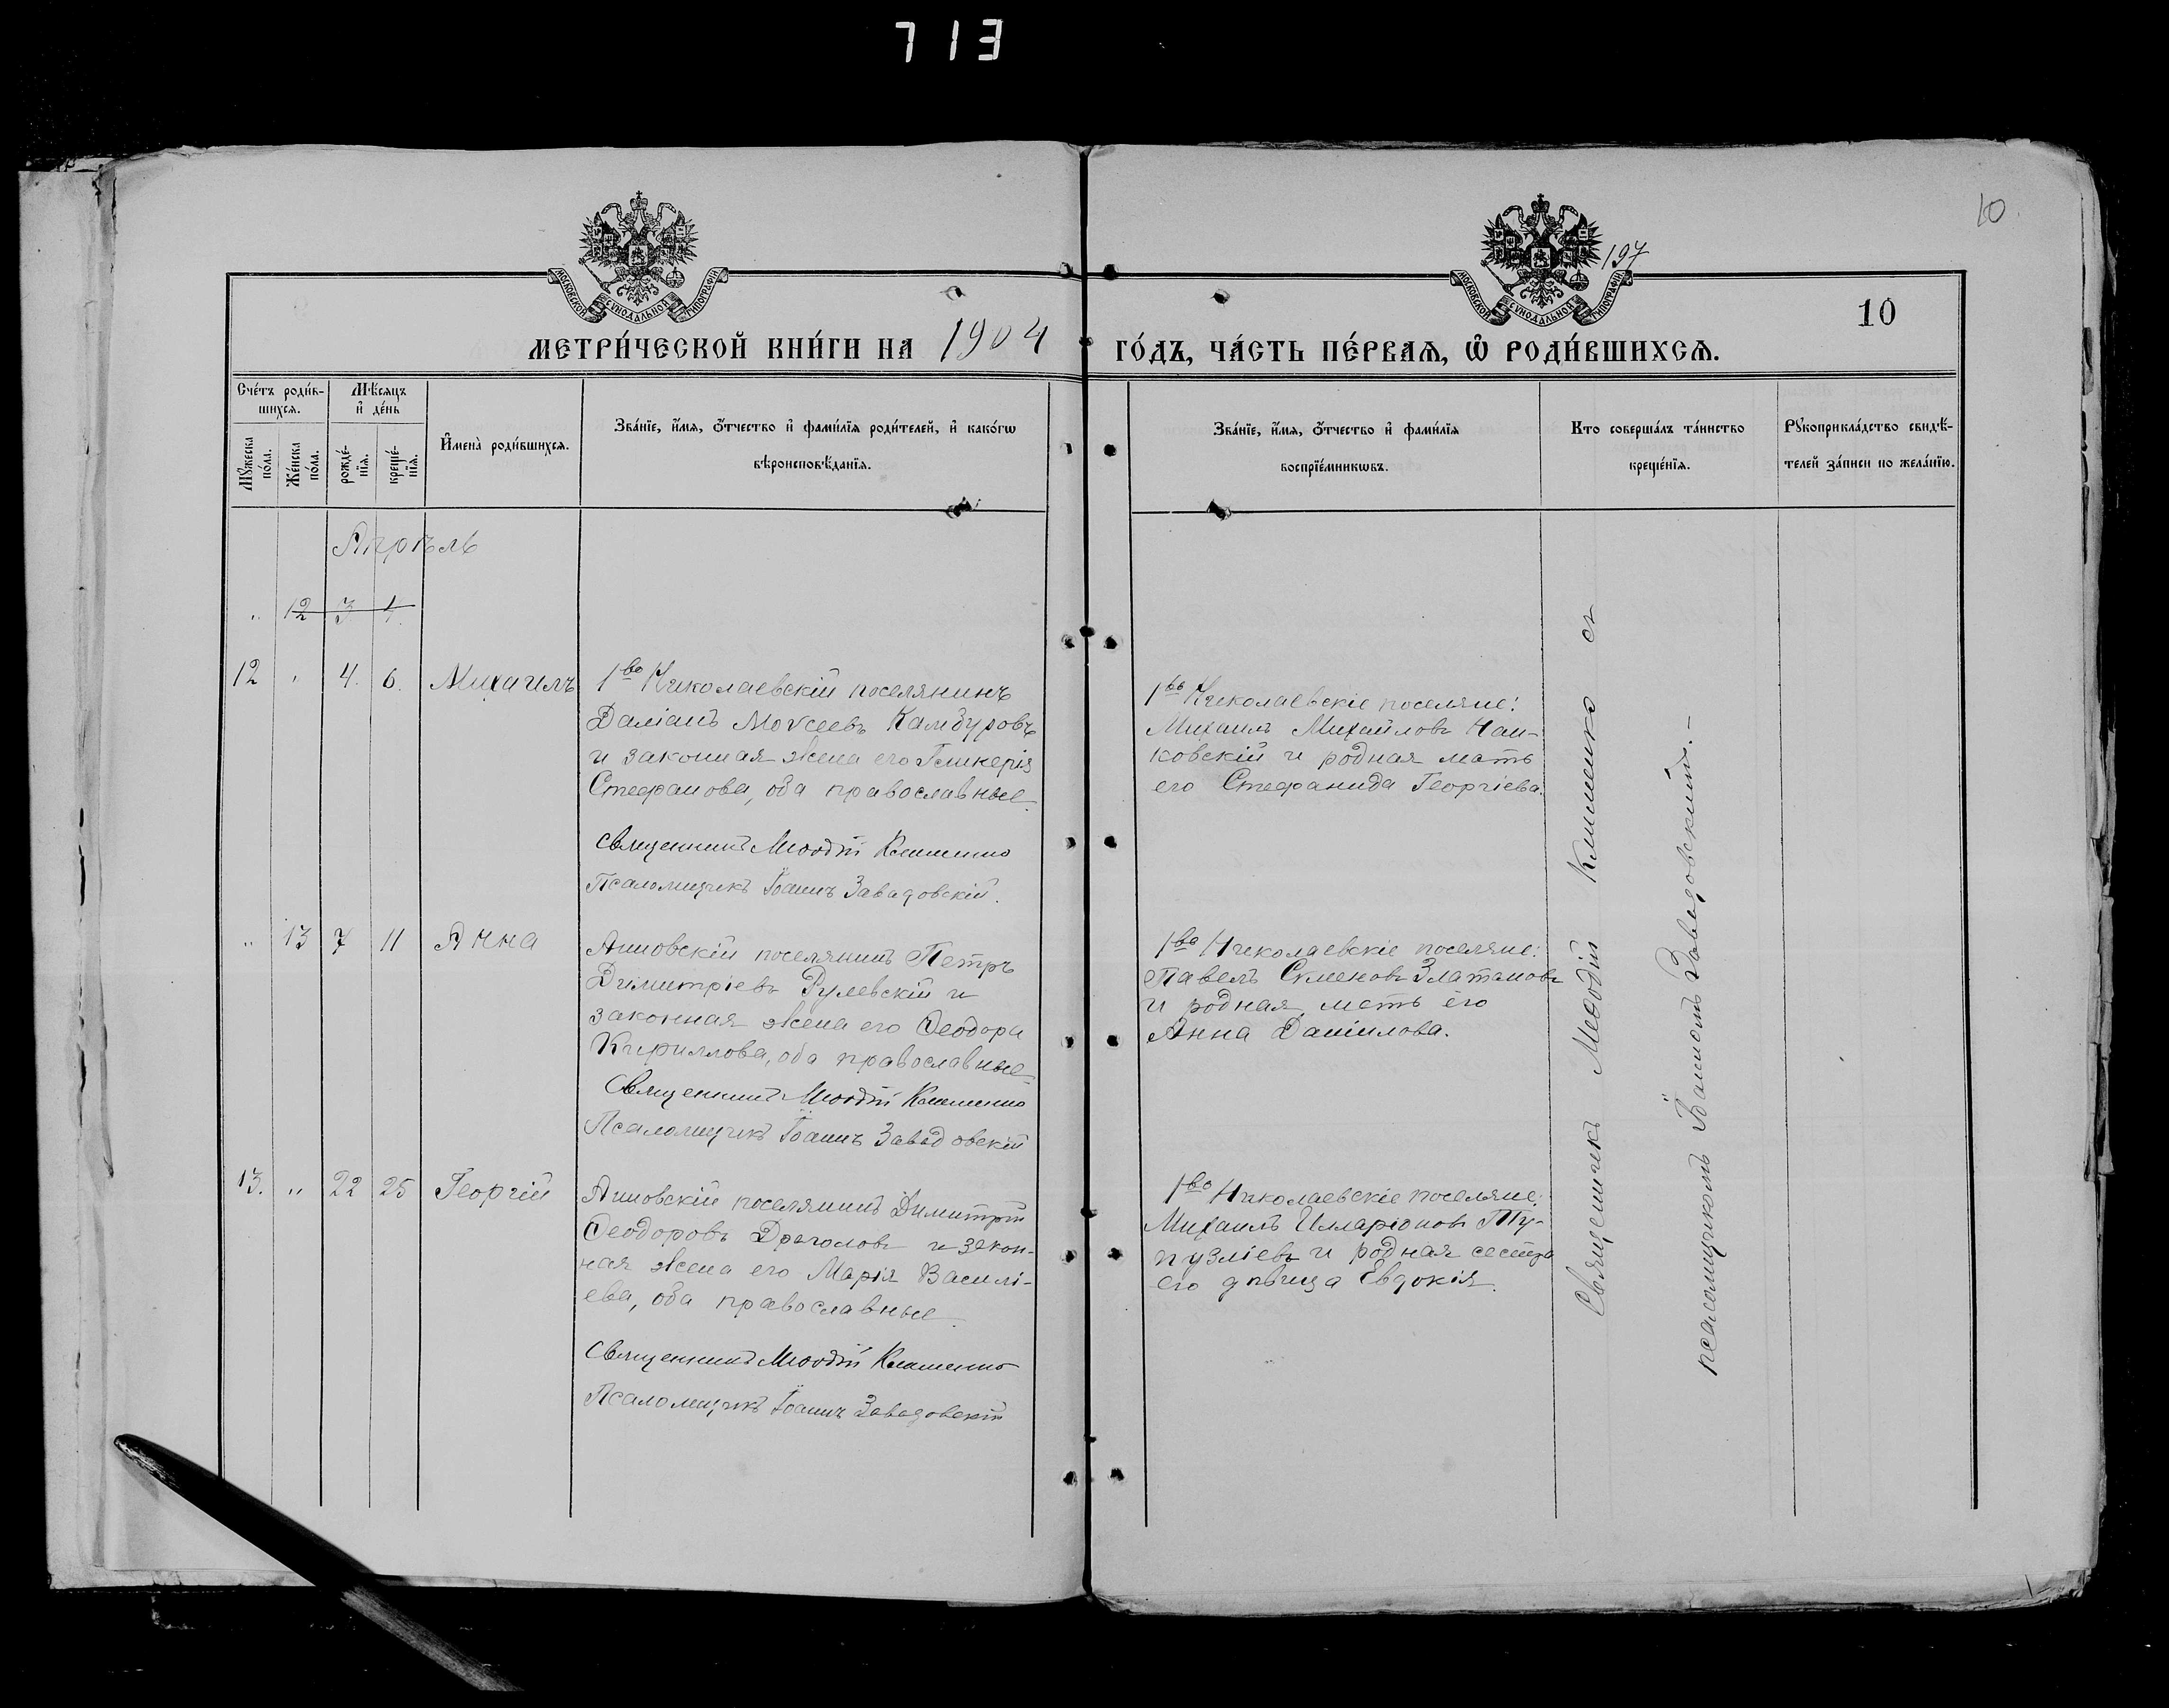 713
10
197
МОСКОВСКОЙ СѴНОДАЛЬНОЙ ТИПОГРАФІИ
МОСКОВСКОЙ СѴНОДАЛЬНОЙ ТИПОГРАФІИ
10
МЕТРИ́ЧЕСКОЙ КНИ́ГИ НА 1904 ГО́ДЪ, ЧА́СТЬ ПЕ́РВАѦ, Ѡ҆ РОДИ́ВШИХСѦ.
Сче́тъ роди́в-
шихсѧ.
Мꙋ́жеска
по́ла.
Же́нска
по́ла.
Мѣ́сѧцъ
и҆ де́нь
рожде́-
нїѧ.
креще́-
нїѧ.
И҆мена̀ роди́вшихсѧ.
Зва́нїе, и҆́мѧ, ѻ҆́тчество и҆ фами́лїѧ роди́телей, и҆ како́гѡ
вѣроисповѣ́данїѧ.
Зва́нїе, и҆́мѧ, ѻ҆́тчество и҆ фами́лїѧ
воспрїе́мникѡвъ.
Кто соверша́лъ та́инство
креще́нїѧ.
Рꙋкоприкла́дство свидѣ́-
телей за́писи по жела́нїю.
Апрѣль
" 12 3 4.
12 " 4. 6. Михаилъ
1во Николаевскій поселянинъ
Даміанъ Моѵсеевъ Камбуровъ
и законная жена его Гликерія
Стефанова, оба православные.
Священникъ Меѳодій Клименко
Псаломщикъ Іоаннъ Завадовскій.
1во Николаевскіе поселяне:
Михаилъ Михайловъ Нан-
ковскій и родная мать
его Стефанида Георгіева.
" 13 7 11 Анна
Анновскій поселянинъ Петръ
Димитріевъ Рулевскій и
законная жена его Ѳеодора
Кириллова, оба православные.
Священникъ Меѳодій Клименко
Псаломщикъ Іоаннъ Завадовскій
1во Николаевскіе поселяне:
Павелъ Семеновъ Златановъ
и родная мать его
Анна Даніилова.
13. " 22 25 Георгій
Анновскій поселянинъ Димитрій
Ѳеодоровъ Драголовъ и закон-
ная жена его Марія Василі-
ева, оба православные.
Священникъ Меѳодій Клименко
Псаломщикъ Іоаннъ Завадовскій
1во Николаевскіе поселяне:
Михаилъ Илларіоновъ Ту-
пузліевъ и родная сестра
его дѣвица Евдокія.
Священникъ Меѳодій Клименко съ
псаломщикомъ Іоанномъ Завадовскимъ.—